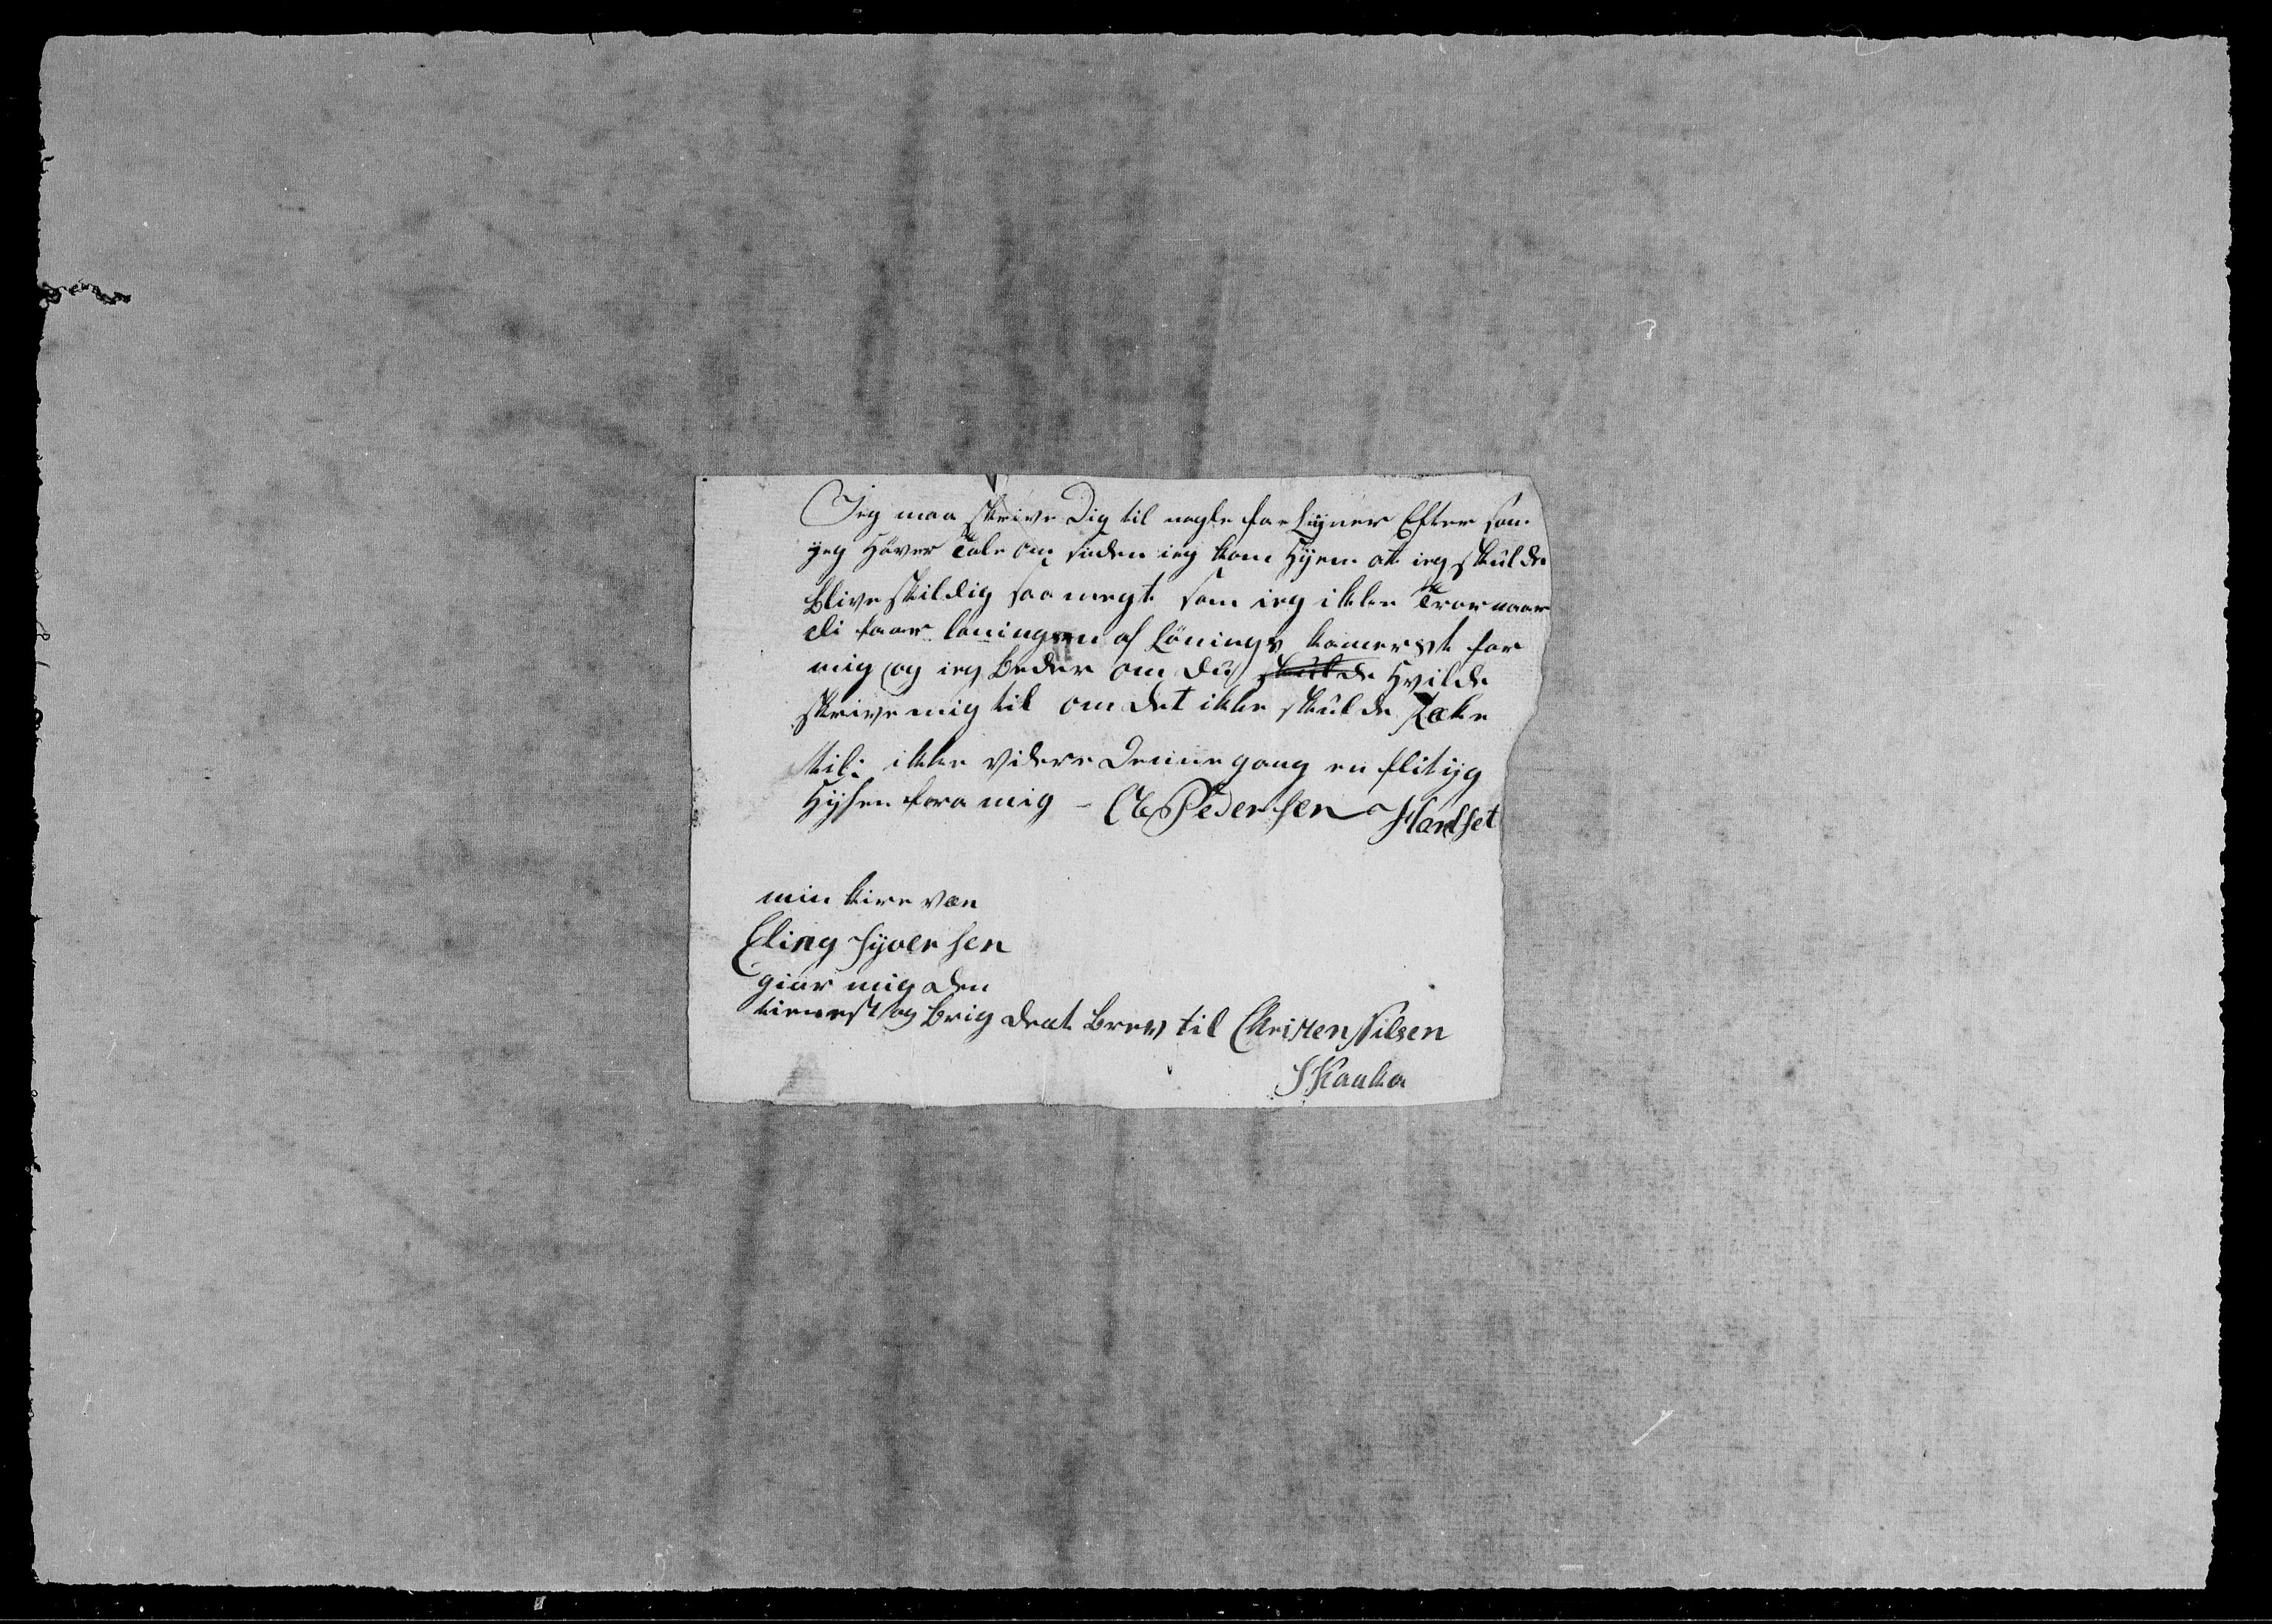 Jeg maa skrive Dig til nogle faa Liyner Efter som
jeg Hörer Tale om siden ieg kom Hijem at ieg skulde
blive skildig saa megt som ieg ikke Tror naar
di faar löningen af Lönings kamerst for
mig og ieg beder om du skulde Hvilde
skrive mig til om det ikke skulde Række
til: ikke videre Denne gang en flitijg
Hijlsen fora mig - Ole Pedersen Hardset
min kire ven
Eling Syversen
giör mig den
tienest og brig deat brev til Christen Nilsen
Skauka